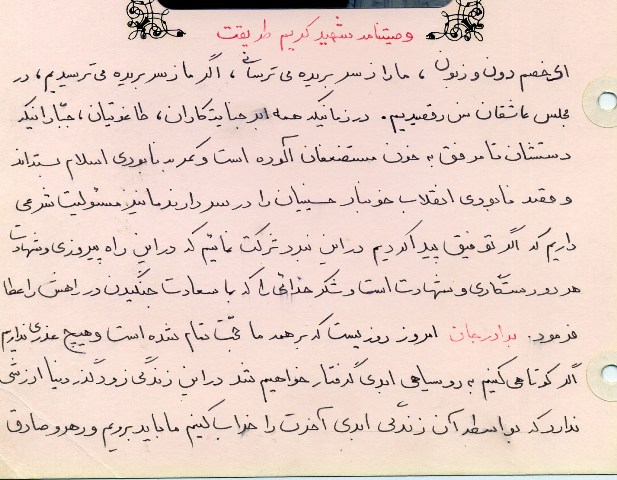 وصیتنامه شهید کریم طریقت
ای خصم دون و زبون ، ما را از سر بریده می ترسانی ، اگر ما ز سر بریده می ترسیدیم ، در
مجلس عاشقان نمی رقصیدیم . در زمانیکه همه ابر جنایتکاران ، طاغوتیان ، جبّارانیکه
دستشان تا مرفق به خون مستضعفان آلوده است و کمر به نابودی اسلام بسته‌اند
و قصد نابودی انقلاب خونبار حسینیان را در سر دارند ما نیز مسئولیت شرعی
داریم که اگر توفیق پیدا کردیم در این نبرد شرکت نمائیم که در این راه پیروزی و شهادت
هر دو رستگاری و شهادت است و شکر خدائی را که با سعادت جنگیدن در راهش را عطا
فرمود . برادرجان امروز روزیست که بر همه ما حجّت تمام شده است و هیچ عذری نداریم
اگر کوتاهی کنیم به رو سیاهی ابدی گرفتار خواهیم شد در این زندگی زودگذر دنیا ارزشی
ندارد که بواسطه آن زندگی ابدی آخرت را خراب کنیم ما باید برویم و رهرو صادق